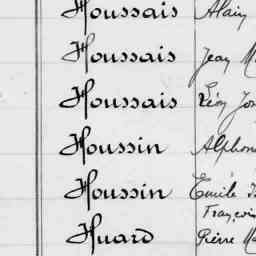 Houssais Alain
Houssais Jean M
Houssais Léon
Houssin Alphon
Houssin Emile
François
Huard Pierre Ma